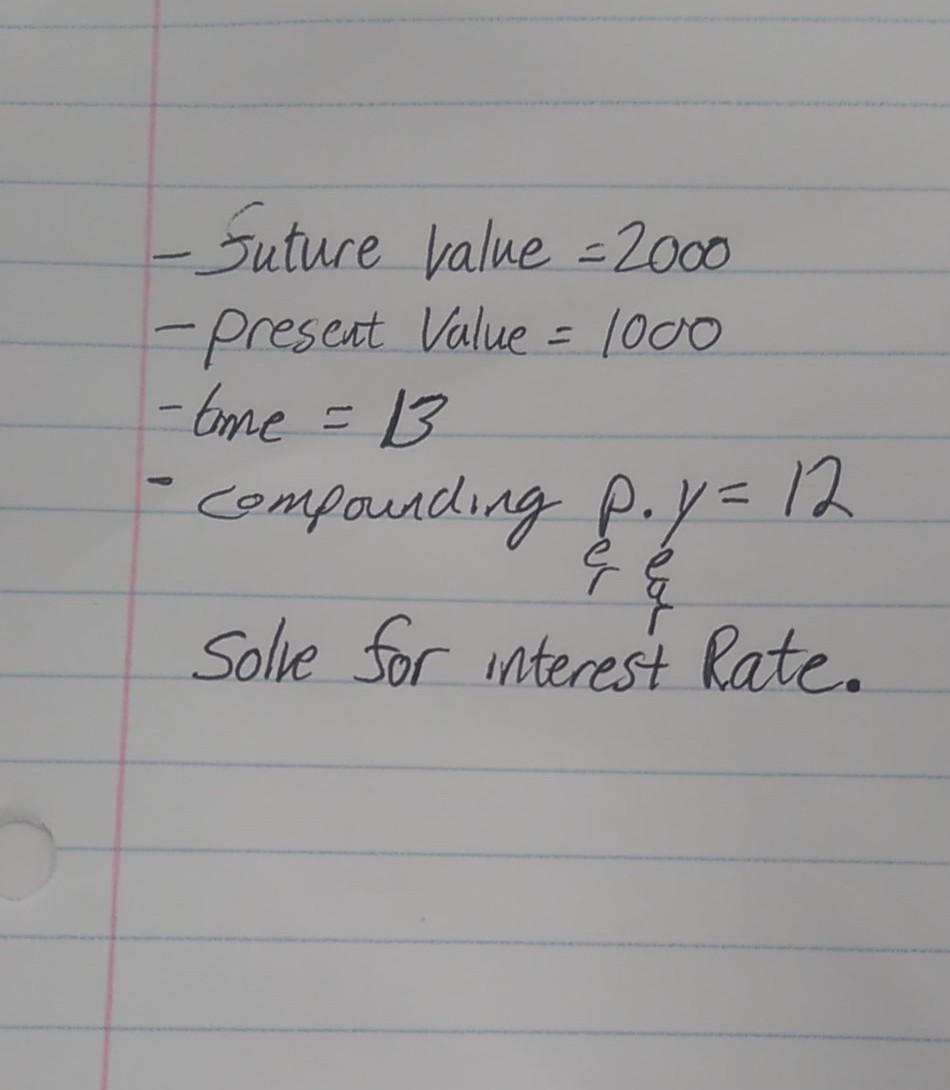 - Future Value = 2000
- present Value = 1000
- time = 13
- compounding p.y = 12
er ear
Solve for interest Rate.